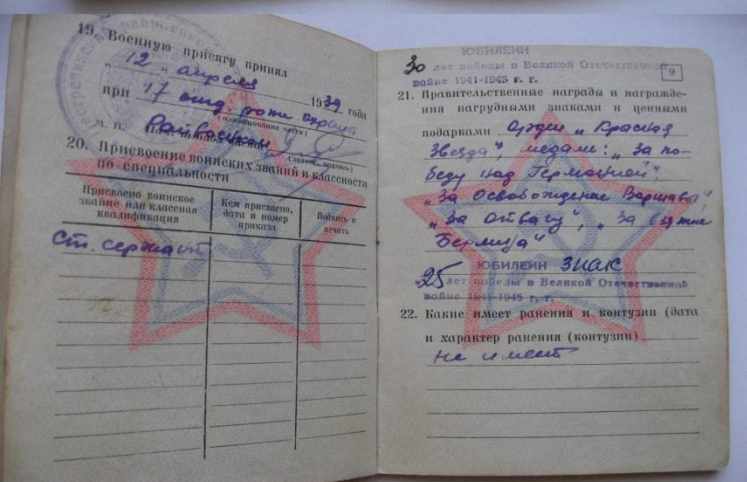 19. Военную присягу принял
"12" апреля 1939 года
при 17 отд. роти охрана
(наименование части)
М. П. Райвоенком
(звание, подпись)
20. Присвоение воинских званий и классности
по специальности
Присвоено воинское
звание или классная
квалификация
Кем присвоено,
дата и номер
приказа
Подпись и
печать
Ст. сержант
9
ЮБИЛЕЙН
30 лет победы в Великой Отечественной
войне 1941-1945 г. г.
21. Правительственные награды и награжде-
ния нагрудными знаками и ценными
подарками Орден „Красная
Звезда", медали: „За по-
беду над Германией",
„За Освобождение Варшавы",
„За отвагу", „За взятие
Берлина"
ЮБИЛЕЙН ЗНАК
25 лет победы в Великой Отечественной
войне 1941-1945 г. г.
22. Какие имеет ранения и контузии (дата
и характер ранения (контузии)
не имеет